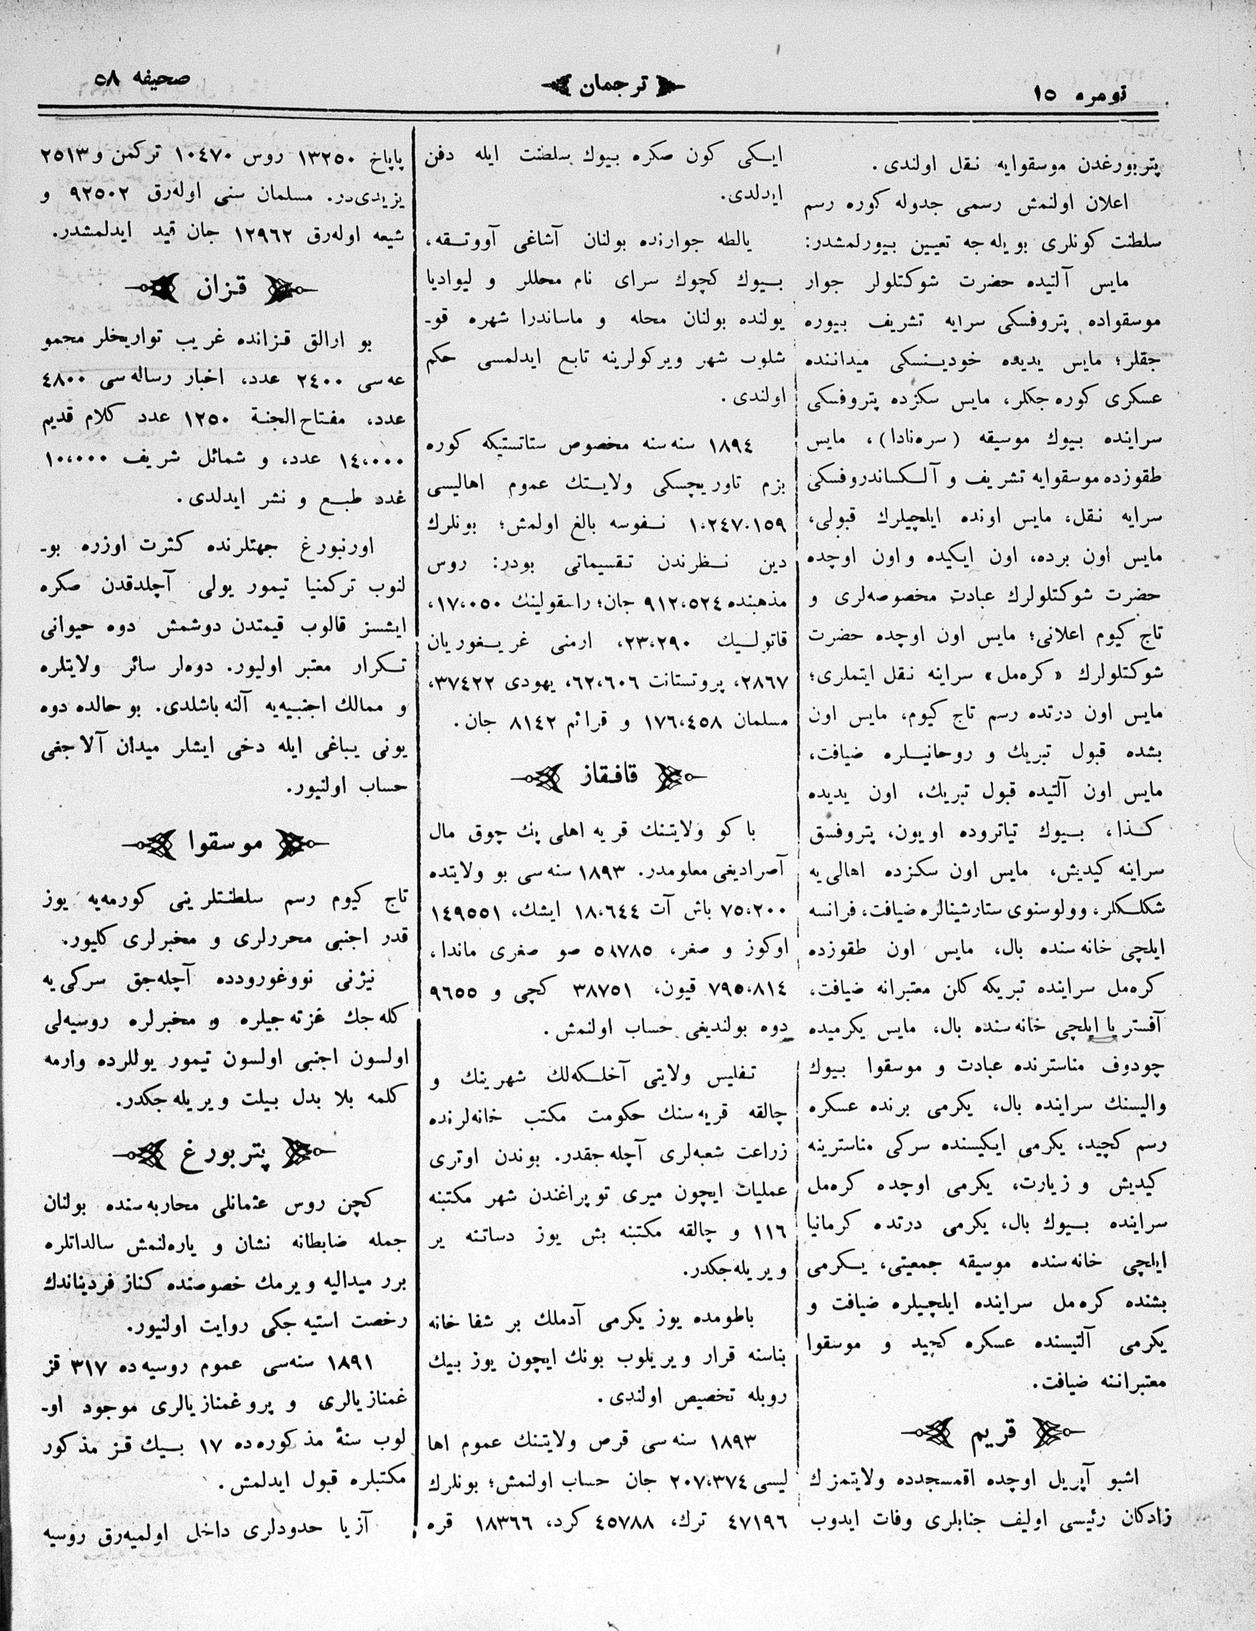 نومره ١٥
ترجمان
صحیفه ٥٨
پتربورغدن موسقوایه نقل اولندی.
اعلان اولنمش رسمی جدوله کوره رسم
سلطنت کونلری بویله‌جه تعیین بیورلمشدر:
مایس آلتیده حضرت شوکتلولر جوار
موسقواده پتروفسکی سرایه تشریف بیوره
جقلر؛ مایس یدیده خودینسکی میداننده
عسکری کوره‌جکلر، مایس سکزده پتروفسکی
سراینده بیوك موسیقه (سره‌نادا)، مایس
طقوزده موسقوایه تشریف و آلکساندروفسکی
سرایه نقل، مایس اونده ایلچیلرك قبولی،
مایس اون برده، اون ایکیده و اون اوچده
حضرت شوکتلولرك عبادت مخصوصه‌لری و
تاج کیوم اعلانی؛ مایس اون اوچده حضرت
شوکتلولرك «کره‌مل» سراینه نقل ایتملری؛
مایس اون درتده رسم تاج کیوم، مایس اون
بشده قبول تبریك و روحانیلره ضیافت،
مایس اون آلتیده قبول تبریك، اون یدیده
کذا، بیوك تیاتروده اویون، پتروفسق
سراینه کیدیش، مایس اون سکزده اهالی‌یه
شکلکلر، وولوسنوی ستارشینالره ضیافت، فرانسه
ایلچی خانه‌سنده بال، مایس اون طقوزده
کره‌مل سراینده تبریکه کلن معتبرانه ضیافت،
آفستریا ایلچی خانه‌سنده بال، مایس یکرمیده
چودوف مناسترنده عبادت و موسقوا بیوك
والیسنك سراینده بال، یکرمی برنده عسکره
رسم کچید، یکرمی ایکیسنده سرکی مناسترینه
کیدیش و زیارت، یکرمی اوچده کره‌مل
سراینده بیوك بال، یکرمی درتده کرمانیا
ایلچی خانه‌سنده موسیقه جمعیتی، یکرمی
بشنده کره‌مل سراینده ایلچیلره ضیافت و
یکرمی آلتیسنده عسکره کچید و موسقوا
معتبراننه ضیافت.
قریم
اشبو آپریل اوچده اقمسجدده ولایتمزك
زادکان رئیسی اولیف جنابلری وفات ایدوب
ایکی کون صکره بیوك سلطنت ایله دفن
ایدلدی.
یالطه جوارنده بولنان آشاغی آووتقه،
بیوك کچوك سرای نام محللر و لیوادیا
یولنده بولنان محله و ماساندرا شهره قو-
شلوب شهر ویرکولرینه تابع ایدلمسی حکم
اولندی.
١٨٩٤ سنه‌سنه مخصوص ستاتستیکه کوره
بزم تاوریچسکی ولایتك عموم اهالیسی
١،٢٤٧،١٥٩ نفوسه بالغ اولمش؛ بونلرك
دین نظرندن تقسیماتی بودر: روس
مذهبنده ٩١٢،٥٢٤ جان؛ راسقولینك ١٧،٠٥٠،
قاتولیك ٢٣،٢٩٠، ارمنی غریغوریان
٢٨٦٧، پروتستانت ٦٢،٦٠٦، یهودی ٣٧٤٢٢،
مسلمان ١٧٦،٤٥٨ و قرائم ٨١٤٢ جان.
قافقاز
باکو ولایتنك قریه اهلی پك چوق مال
آصرادیغی معلومدر. ١٨٩٣ سنه‌سی بو ولایتده
٧٥،٢٠٠ باش آت ١٨،٦٤٤ ایشك، ١٤٩٥٥١
اوکوز و صغر، ٥٨٧٨٥ صو صغری ماندا،
٧٩٥،٨١٤ قیون، ٣٨٧٥١ کچی و ٩٦٥٥
دوه بولندیغی حساب اولنمش.
تفلیس ولایتی آخلکه‌لك شهرینك و
چالقه قریه‌سنك حکومت مکتب خانه‌لرنده
زراعت شعبه‌لری آچله‌جقدر. بوندن اوتری
عملیات ایچون میری توپراغندن شهر مکتبنه
١١٦ و چالقه مکتبنه بش یوز دساتنه یر
ویریله‌جکدر.
باطومده یوز یکرمی آدملك بر شفا خانه
بناسنه قرار ویریلوب بونك ایچون یوز بیك
روبله تخصیص اولندی.
١٨٩٣ سنه‌سی قرص ولایتنك عموم اها
لیسی ٢٠٧،٣٧٤ جان حساب اولنمش؛ بونلرك
٤٧١٩٦ ترك، ٤٥٧٨٨ کرد، ١٨٣٦٦ قره
پاپاخ ١٣٢٥٠ روس ١٠٤٧٠ ترکمن و ٢٥١٣
یزیدی‌در. مسلمان سنی اوله‌رق ٩٢٥٠٢ و
شیعه اوله‌رق ١٢٩٦٢ جان قید ایدلمشدر.
قزان
بو ارالق قزانده غریب تواریخلر مجمو
عه‌سی ٢٤٠٠ عدد، اخبار رساله‌سی ٤٨٠٠
عدد، مفتاح‌الجنة ١٢٥٠ عدد کلام قدیم
١٤،٠٠٠ عدد، و شمائل شریف ١٠،٠٠٠
عدد طبع و نشر ایدلدی.
اورنبورغ جهتلرنده کثرت اوزره بو-
لنوب ترکمنیا تیمور یولی آچلدقدن صکره
ایشسز قالوب قیمتدن دوشمش دوه حیوانی
تکرار معتبر اولیور. دوه‌لر سائر ولایتلره
و ممالك اجنبیه‌یه آلنه باشلدی. بو حالده دوه
یونی یباغی ایله دخی ایشلر میدان آلاجغی
حساب اولنیور.
موسقوا
تاج کیوم رسم سلطنتلرینی کورمه‌یه یوز
قدر اجنبی محررلری و مخبرلری کلیور.
نیژنی نووغورودده آچله‌جق سرکی‌یه
کله‌جك غزته‌جیلره و مخبرلره روسیه‌لی
اولسون اجنبی اولسون تیمور یوللرده وارمه
کلمه بلا بدل بیلت ویریله‌جکدر.
پتربورغ
کچن روس عثمانلی محاربه‌سنده بولنان
جمله ضابطانه نشان و یاره‌لنمش سالداتلره
برر میدالیه ویرمك خصوصنده کناز فردیناندك
رخصت استیه‌جکی روایت اولنیور.
١٨٩١ سنه‌سی عموم روسیه‌ده ٣١٧ قز
غمنازیالری و پروغمنازیالری موجود او-
لوب سنهٔ مذکوره‌ده ١٧ بیك قز مذکور
مکتبلره قبول ایدلمش.
آزیا حدودلری داخل اولمیه‌رق روسیه